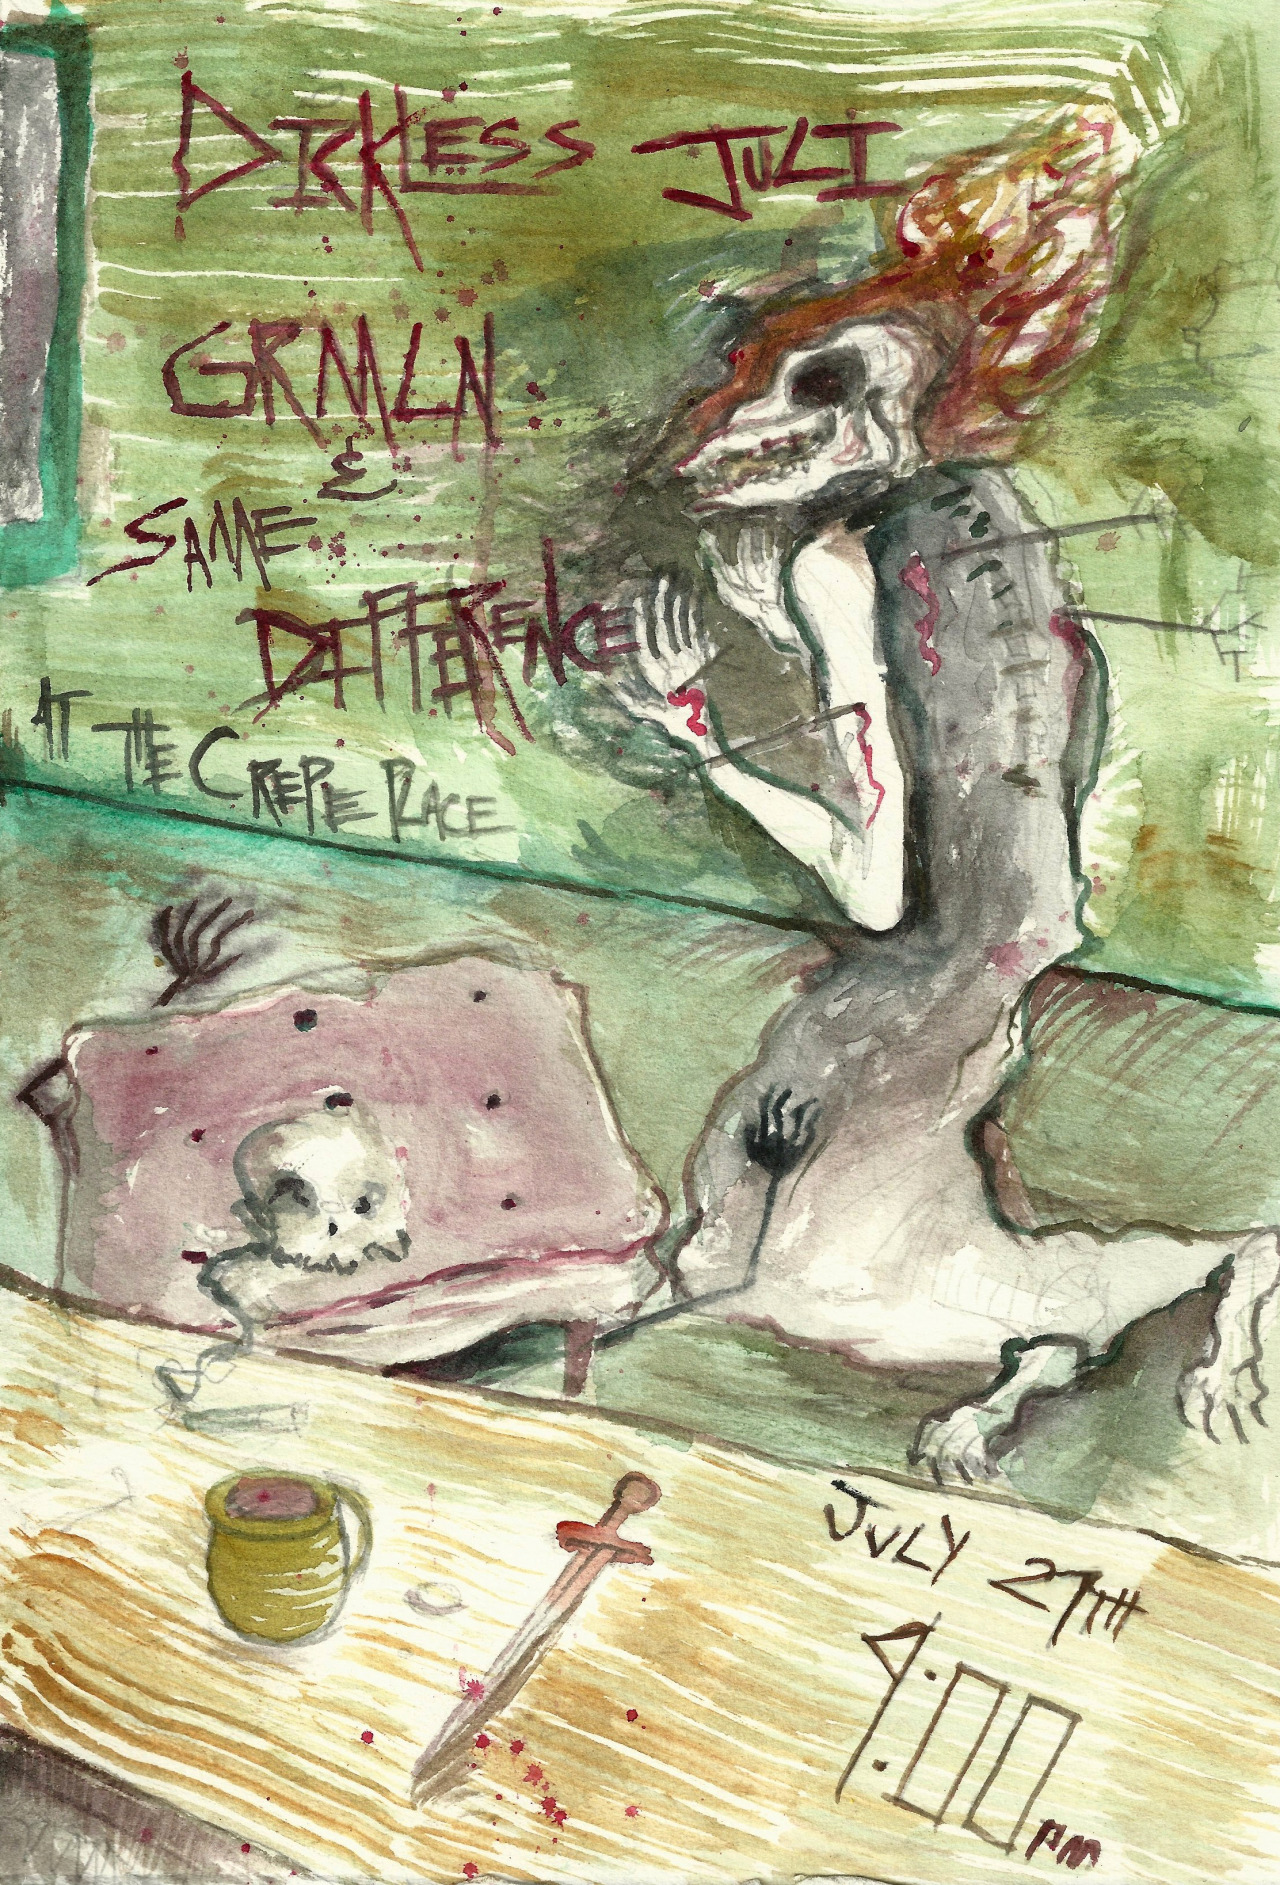 DICKLESS JULI
GRMLN
&
SAME
DIFFERENCE
AT THE CREPE PLACE
JULY 27TH
9:00 PM